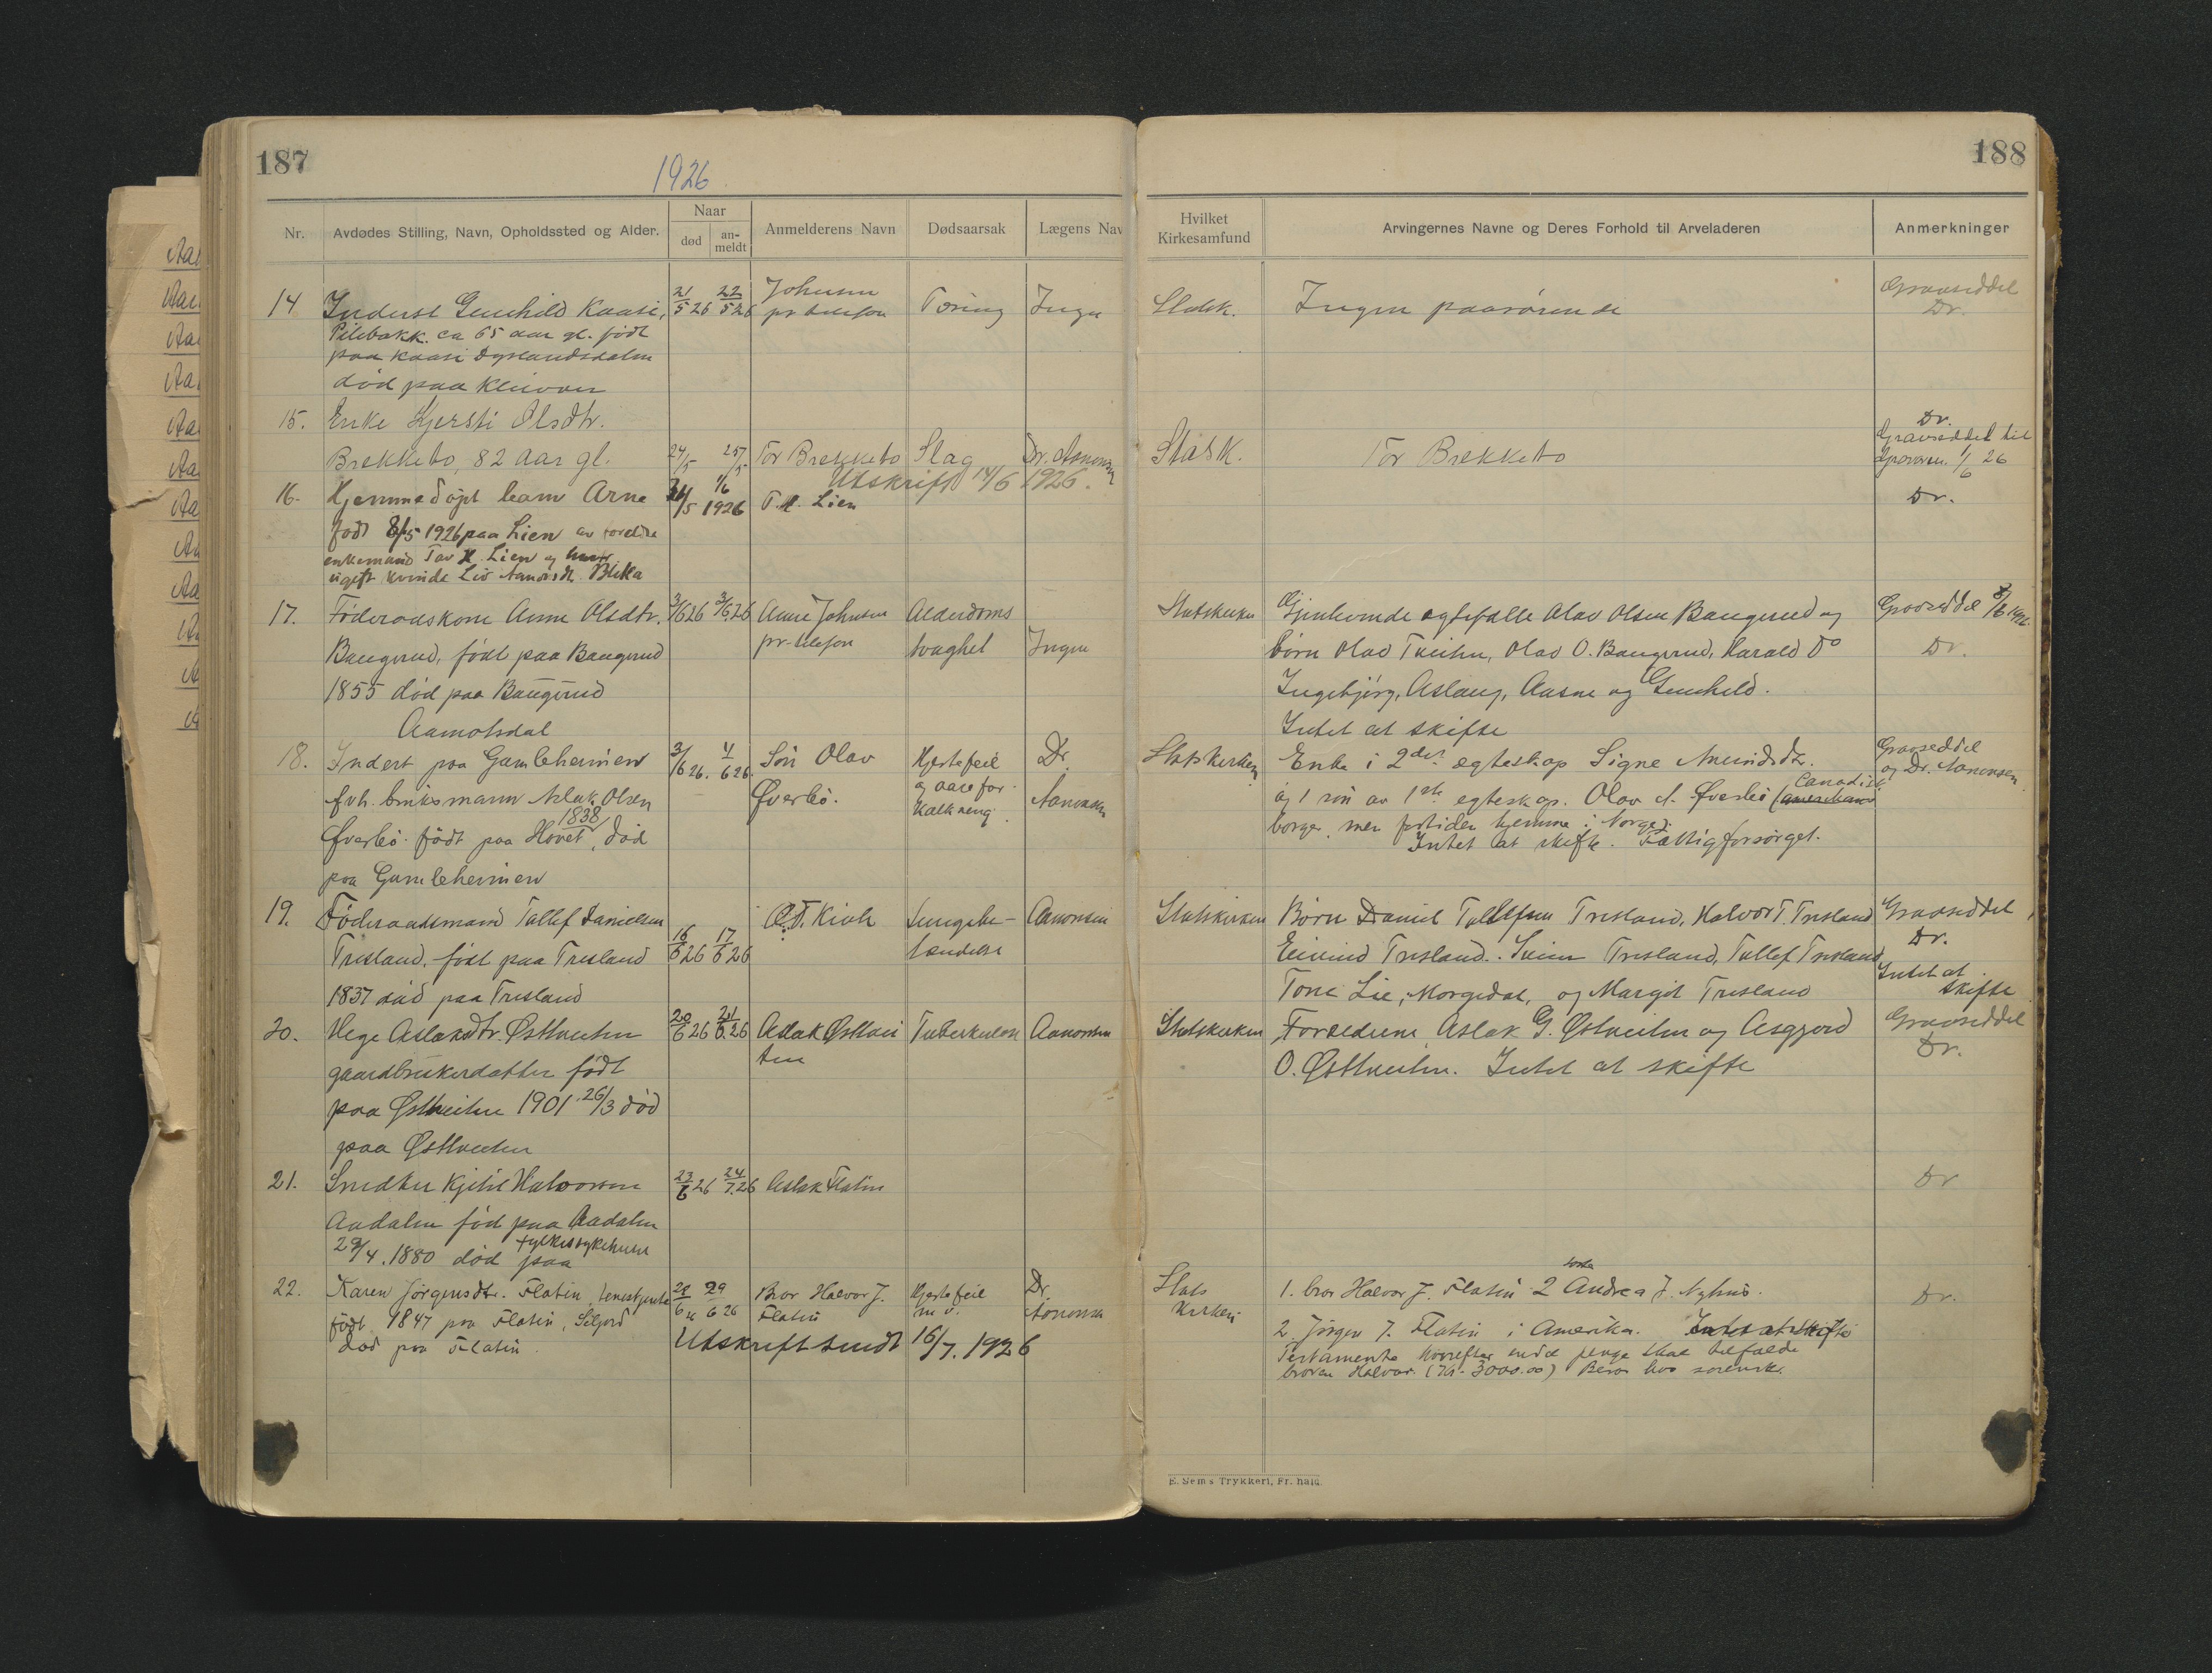 187
1926
188
Nr.
Avdødes Stilling, Navn, Opholdssted og Alder.
Naar
død
an-
meldt
Anmelderens Navn
Dødsaarsak
Lægens Nav
Hvilket
Kirkesamfund
Arvingernes Navne og Deres Forhold til Arveladeren
Anmerkninger
14 Inderst Gunhild Kaasi, 21/5 26 22/5 26 Johnsen Tæring Ingen Statsk. Ingen paarørende Gravseddel
Pilebakk. ca 65 aar gl. født pr telefon Dr.
paa Kaasi
død paa Kleivan
15. Enke Kjersti Olsdtr. Dr.
Brekketo, 82 aar gl. 24/5 25/5 Tor Brekketo Slag Dr. Aanonsen Statsk. Tor Brekketo Gravseddel til
Utskrift 14/6 1926. Graveren 1/6 26
16. Hjemmedøpt barn Arne 31/5 1/6 1926 T. H. Lien Dr.
født 8/5 1926 paa Lien av foreldre
enkemand Tov H. Lien og
ugift kvinde Liv Aanonsdt. Blika
17. Føderaadskone Anne Olsdtr. 3/6 26 3/6 26 Anne Johnsen Alderdoms Statskirken Gjenlevende egtefælle Olav Olsen Baugerud og Gravseddel 8/6 1926
Baugerud, født paa Baugerud pr. telefon svaghet Ingen børn Olav Tveiten, Olav O. Baugerud, Harald do Dr.
1855 død paa Baugerud Ingebjørg, Aslaug, Aasne og Gunhild.
Aamotsdal Intet at skifte
18. Inderst paa Gamleheimen 3/6 26. 4/6 26. Søn Olav Hjertefeil Dr. Statskirken Enke i 2det egteskap Signe Amundsdtr. Gravseddel
fvh. bruksmann Aslak Olsen Øverbö. og aarefor- Aanonsen og 1 søn av 1ste egteskap. Olav A. Øverbö (Canadisk og Dr. Aanonsen
1838 kalkning borger, men fortiden hjemme i Norge).
Øverbö. født paa Hovet, død Intet at skifte. Fattigforsørget.
paa Gamleheimen
19. Føderaadsmand Tallef Danielsen 16/6 26 17/6 26 O. T. Kivle Lungebe- Aanonsen Statskirken Børn Daniel Tallefsen Trisland, Halvor T. Trisland Gravseddel
Trisland. født paa Trisland tændelse Eivind Trisland. Svein Trisland, Tallef Trisland Dr.
1837 død paa Trisland Tone Lie, Morgedal, og Margit Trisland Intet at skifte
20. Hege Aslaksdtr. Østtveiten 20/6 26 21/6 26 Aslak Østtvei Tuberkulose Aanonsen Statskirken Foreldrene Aslak G. Østtveiten og Asgjerd Gravseddel
gaardbrukerdatter født ten O. Østtveiten. Intet at skifte Dr.
paa Østtveiten 1901 26/3 død
paa Østtveiten
21. Snedker Kjetil Halvorsen 23/6 26 24/7 26 Aslak Flatin Dr
Aadalen fød paa Aadalen
29/4. 1880 død paa fylkessykehuset
22. Karen Jørgensdtr. Flatin, tenestjente 28/6 29/6 26 Bror Halvor J. Hjertefeil Dr. Stats 1. bror Halvor J. Flatin 2 søster Andrea J. Nyhus. Dr.
født 1847 paa Flatin, Seljord Flatin m. v. Aanonsen kirken 2. Jørgen J. Flatin i Amerika. Intet at skifte
død paa Flatin. Utskrift sendt 16/7. 1926 Testamente hvorefter endel penge skal tilfalde
broren Halvor. (Kr. 3000.00) Beror hos sorensk.
E. Sem's Trykkeri, Fr.hald.